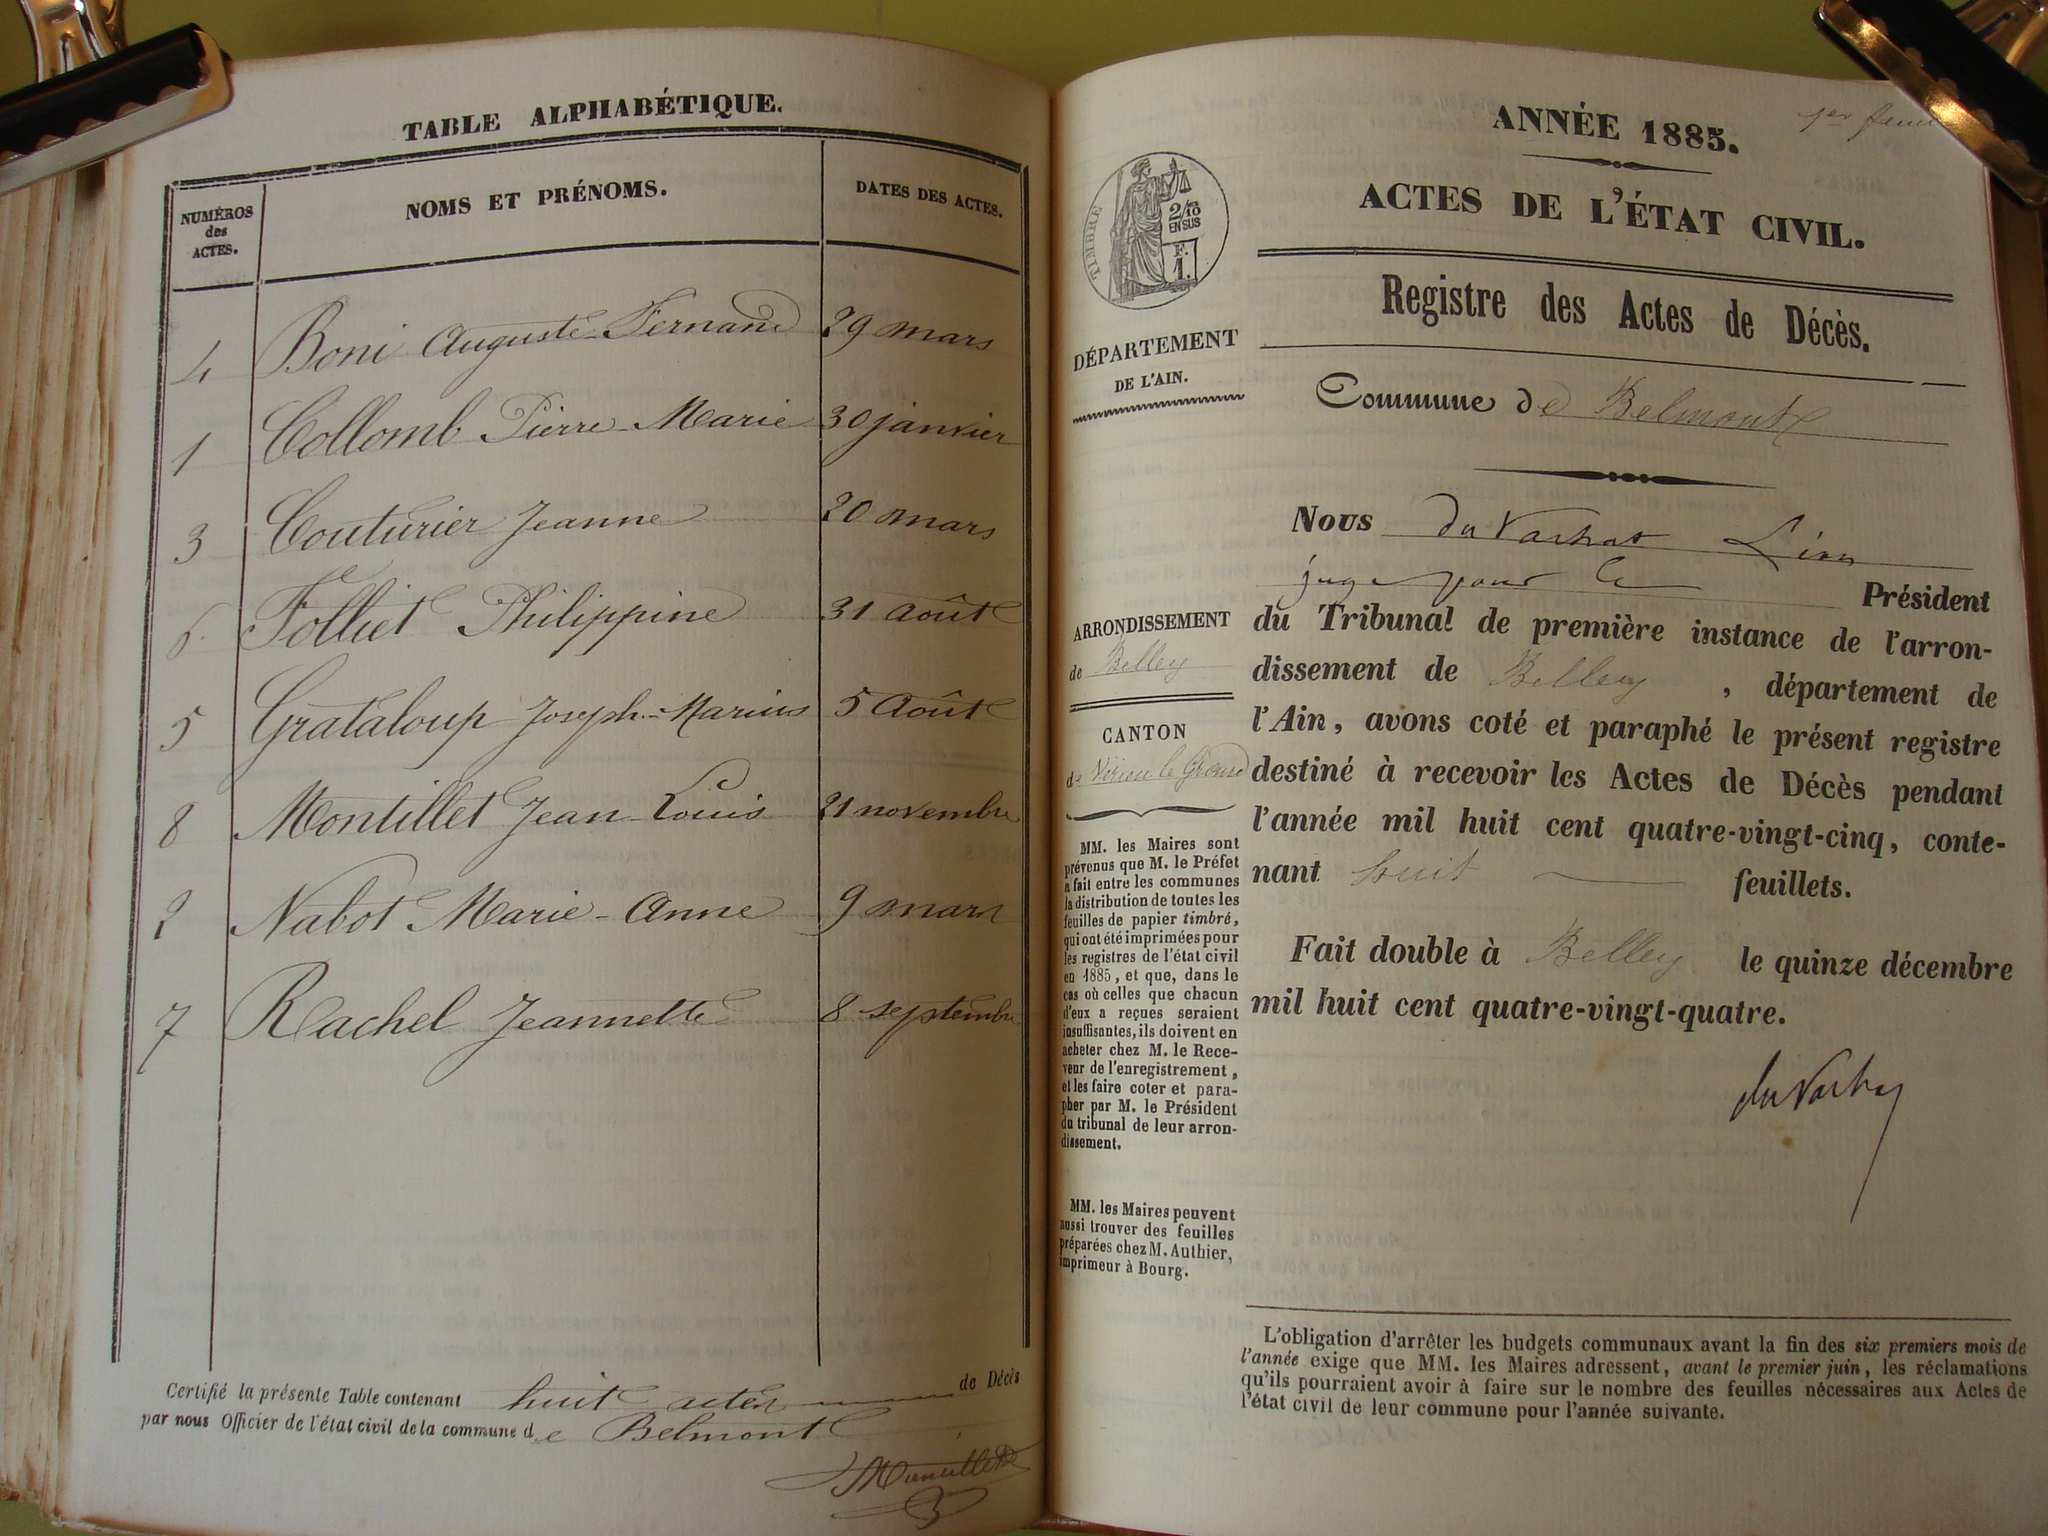 TABLE ALPHABÉTIQUE.
NUMÉROS
des
ACTES.
NOMS ET PRÉNOMS.
DATES DES ACTES.
4 Boni Auguste-Fernand 29 mars
1 Collomb Pierre-Marie 30 janvier
3 Couturier Jeanne 20 mars
6 Folliet Philippine 31 Août
5 Grataloup Joseph-Marius 5 Août
8 Montillet Jean-Louis 21 novembre
2 Nabot Marie-Anne 9 mars
7 Rachel Jeannette 8 septembre
Certifié la présente Table contenant huit actes de Décès
par nous Officier de l'état civil de la commune de Belmont
1er
ANNÉE 1885.
ACTES DE L'ÉTAT CIVIL.
TIMBRE
2/10
EN SUS
F.
1.
Registre des Actes de Décès.
DÉPARTEMENT
DE L'AIN.
Commune de Belmont
Nous du Vachat Léon
juge pour le Président
du Tribunal de première instance de l'arron-
dissement de Belley, département de
l'Ain, avons coté et paraphé le présent registre
destiné à recevoir les Actes de Décès pendant
l'année mil huit cent quatre-vingt-cinq, conte-
nant huit feuillets.
Fait double à Belley le quinze décembre
mil huit cent quatre-vingt-quatre.
du Vachat
ARRONDISSEMENT
de Belley
CANTON
de Virieu le Grand
MM. les Maires sont
prévenus que M. le Préfet
a fait entre les communes
la distribution de toutes les
feuilles de papier timbré,
qui ont été imprimées pour
les registres de l'état civil
en 1885, et que, dans le
cas où celles que chacun
d'eux a reçues seraient
insuffisantes, ils doivent en
acheter chez M. le Rece-
veur de l'enregistrement,
et les faire coter et para-
pher par M. le Président
du tribunal de leur arron-
dissement.
MM. les Maires peuvent
aussi trouver des feuilles
préparées chez M. Authier,
imprimeur à Bourg.
L'obligation d'arrêter les budgets communaux avant la fin des six premiers mois de
l'année exige que MM. les Maires adressent, avant le premier juin, les réclamations
qu'ils pourraient avoir à faire sur le nombre des feuilles nécessaires aux Actes de
l'état civil de leur commune pour l'année suivante.